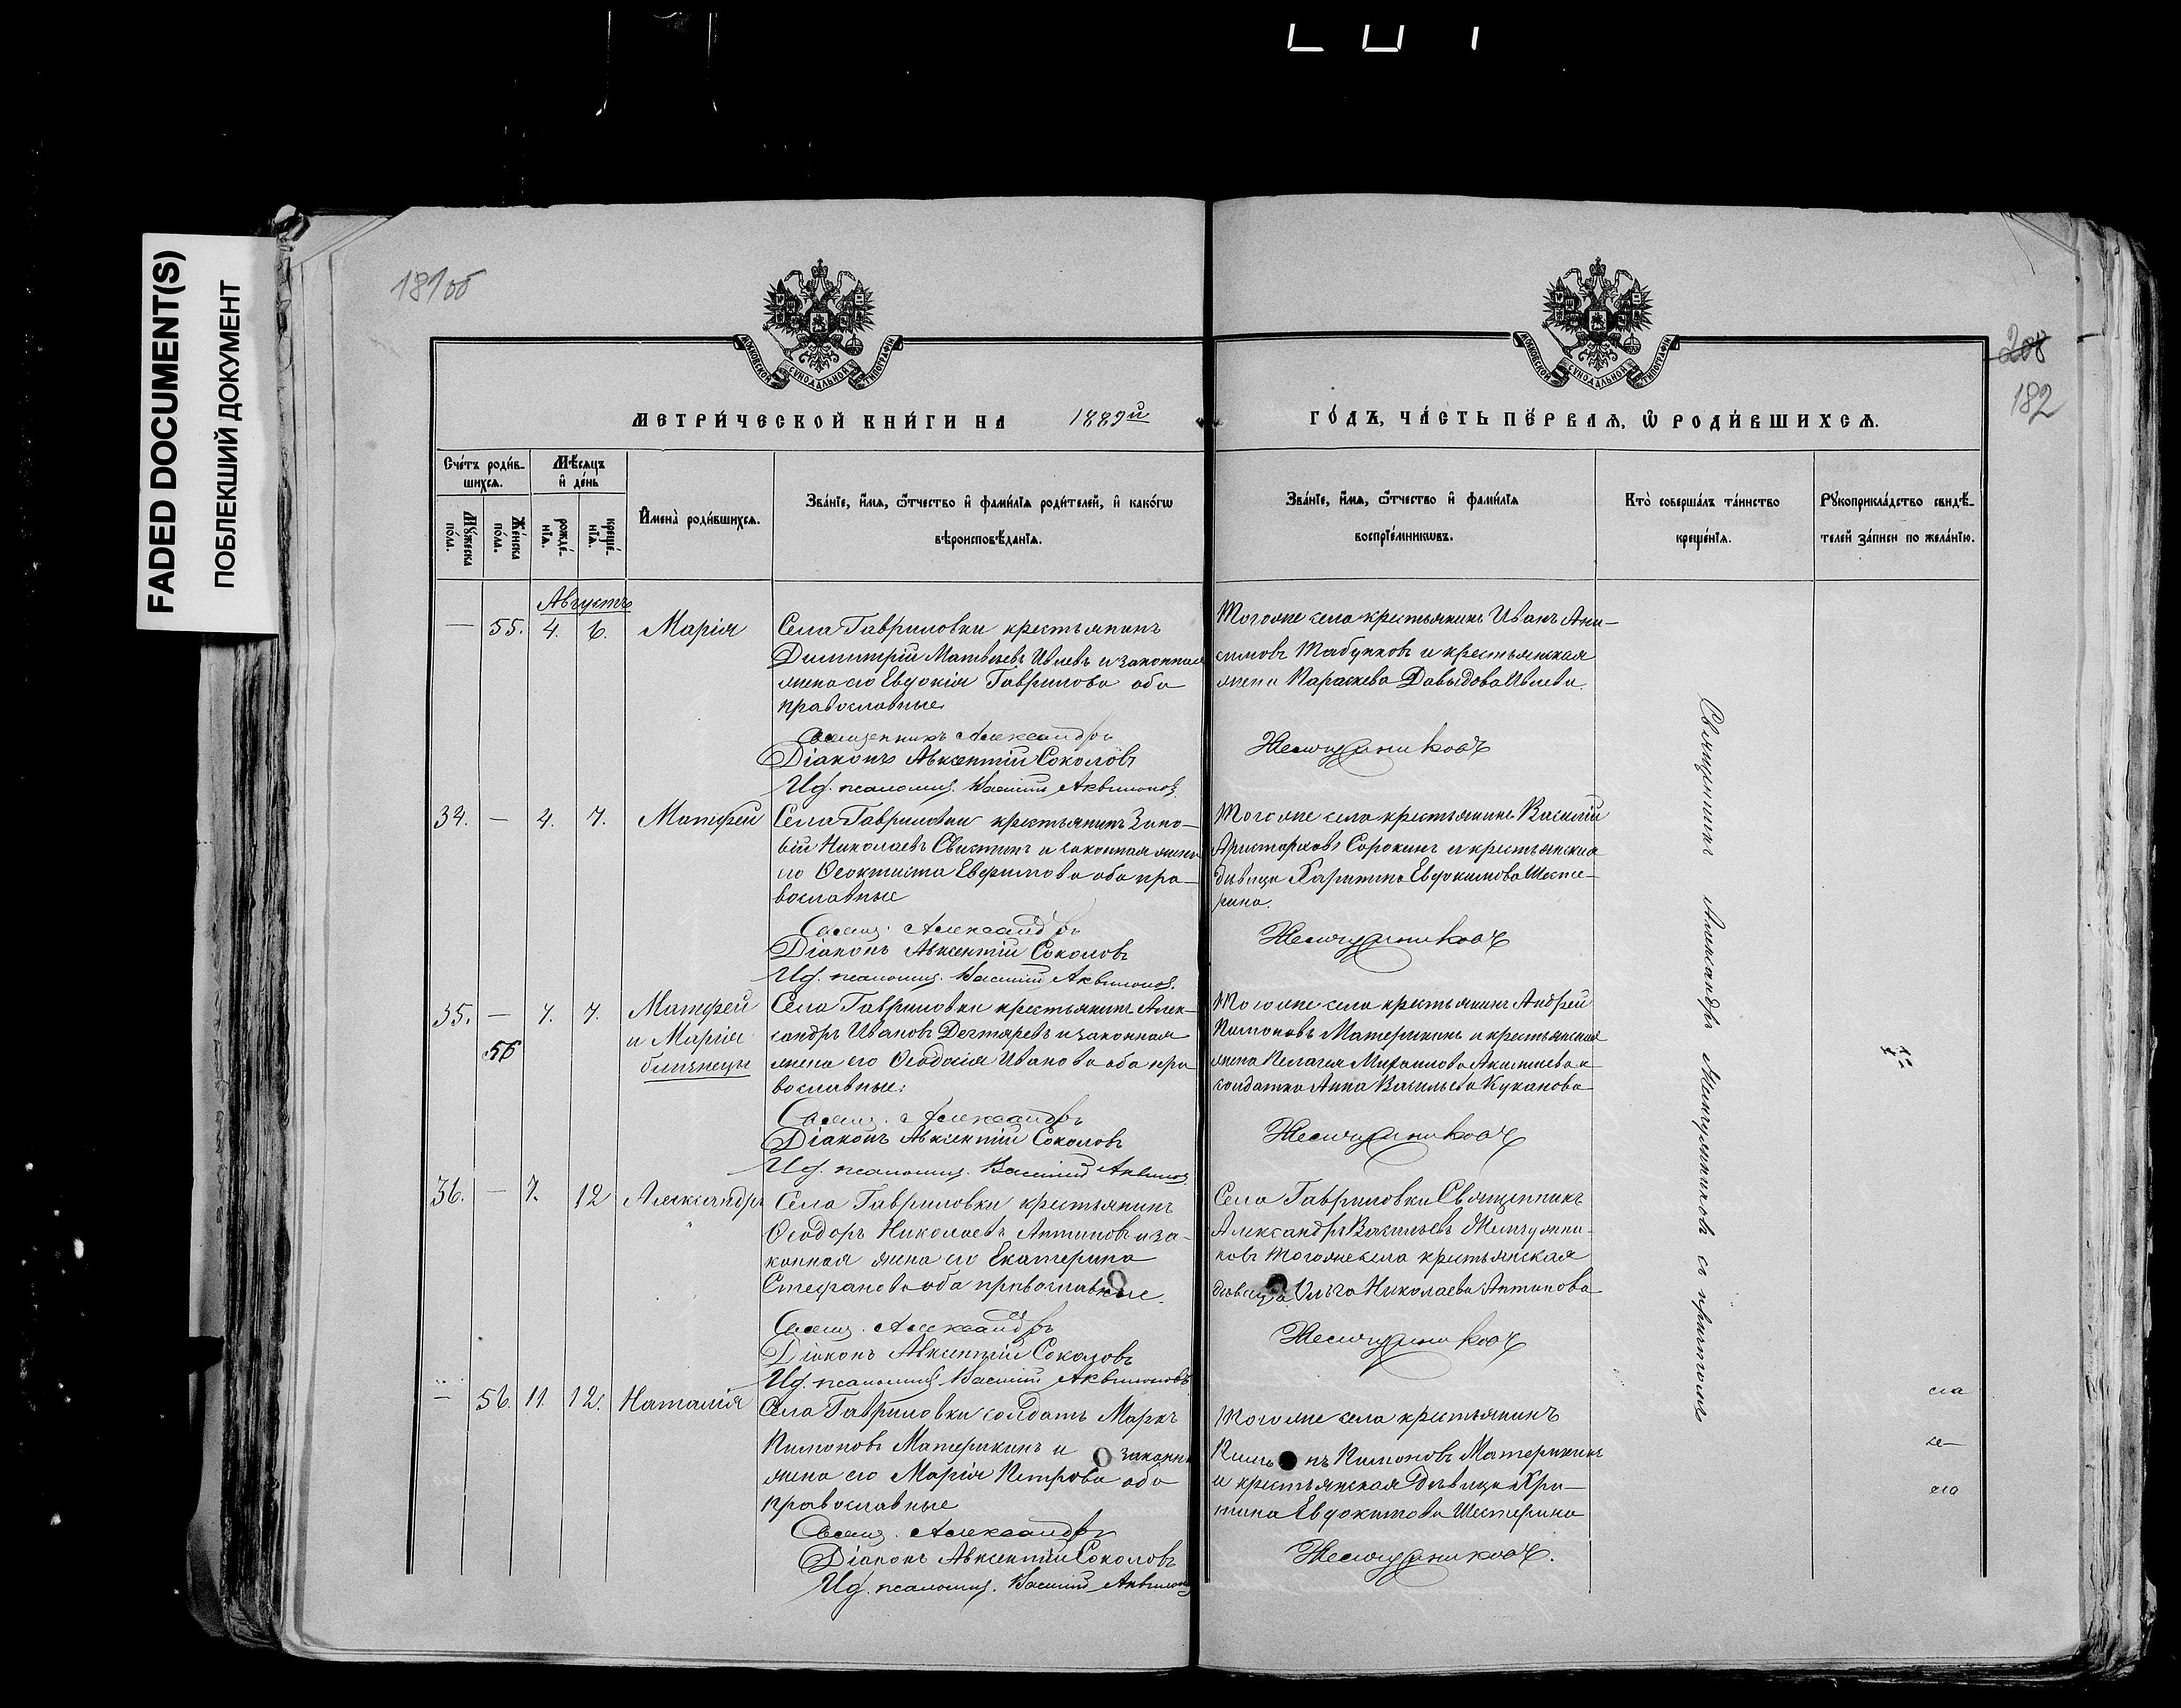 FADED DOCUMENT(S)
ПОБЛЕКШИЙ ДОКУМЕНТ
181об
208
182
МОСКОВСКОЙ СѴНОДАЛЬНОЙ ТИПОГРАФІИ
МОСКОВСКОЙ СѴНОДАЛЬНОЙ ТИПОГРАФІИ
МЕТРИ́ЧЕСКОЙ КНИ́ГИ НА 1889й ГО́ДЪ, ЧА́СТЬ ПЕ́РВАѦ, Ѡ҆ РОДИ́ВШИХСѦ.
Сче́тъ роди́в-
шихсѧ.
Мꙋ́жеска
по́ла.
Же́нска
по́ла.
Мѣ́сѧцъ
и҆ де́нь
рожде́-
нїѧ.
креще́-
нїѧ.
И҆мена̀ роди́вшихсѧ.
Зва́нїе, и҆́мѧ, ѻ҆́тчество и҆ фами́лїѧ роди́телей, и҆ како́гѡ
вѣроисповѣ́данїѧ.
Зва́нїе, и҆́мѧ, ѻ҆́тчество и҆ фами́лїѧ
воспрїе́мникѡвъ.
Кто̀ соверша́лъ та́инство
креще́нїѧ.
Рꙋкоприкла́дство свидѣ́-
телей за́писи по жела́нїю.
Августъ
— 55. 4. 6. Марія
Села Гавриловки крестьянинъ
Димитрій Матвѣевъ Ивлевъ и законная
жена его Евдокія Гаврилова оба
православные
Священникъ Александръ
Діаконъ Авксентій Соколовъ
Ид. псаломщ. Василій Аквилонов
Тогоже села крестьянинъ Иванъ Ани-
симовъ Табунковъ и крестьянская
жена Параскева Давыдова Ивлева.
Жемчужниковъ
34. — 4. 7. Матфей
Села Гавриловки крестьянинъ Зино-
вій Николаевъ Свистинъ и законная жена
его Ѳеоктиста Евфимова оба пра-
вославные
Свящ. Александръ
Діаконъ Авксентій Соколовъ
Ид. псаломщ. Василій Аквилонов.
Тогоже села крестьянинъ Василій
Аристарховъ Сорокинъ и крестьянская
дѣвица Харитина Евдокимова Шесте-
рина.
Жемчужниковъ
35. — 7. 7. Матфей
56
и Марія
близнецы
Села Гавриловки крестьянинъ Алек-
сандръ Ивановъ Дегтяревъ и законная
жена его Ѳеодосія Иванова оба пра
вославные:
Свящ. Александръ
Діаконъ Авксентій Соколовъ
Ид. псаломщ. Василій Аквилон
Тогоже села крестьянинъ Андрей
Пимоновъ Материкинъ и крестьянская
жена Пелагея Михаилова и
солдатка Анна Васильева Куканова
Жемчужниковъ
36. — 7. 12 Александръ
Села Гавриловки крестьянинъ
Ѳеодоръ Николаевъ Антиповъ и за-
конная жена его Екатерина
Стефанова оба православные.
Свящ. Александръ
Діаконъ Авксентій Соколовъ
Ид. псаломщ. Василій Аквилоновъ
Села Гавриловки Священникъ
Александръ Васильевъ Жемчужни-
ковъ тогоже села крестьянская
дѣвица Ольга Николаева Антипова
Жемчужниковъ
— 56. 11. 12. Наталія
Села Гавриловки солдатъ Маркъ
Пимоновъ Материкинъ и законн
жена его Марія Петрова оба
православные
Свящ. Александръ
Діаконъ Авксентій Соколовъ
Ид. псаломщ. Василій Аквилон
Тогоже села крестьянинъ
Пимоновъ Материкинъ
и крестьянская дѣвица Хри-
тина Евдокимова Шестерина
Жемчужниковъ.
Священникъ Александръ Жемчужниковъ съ причтомъ